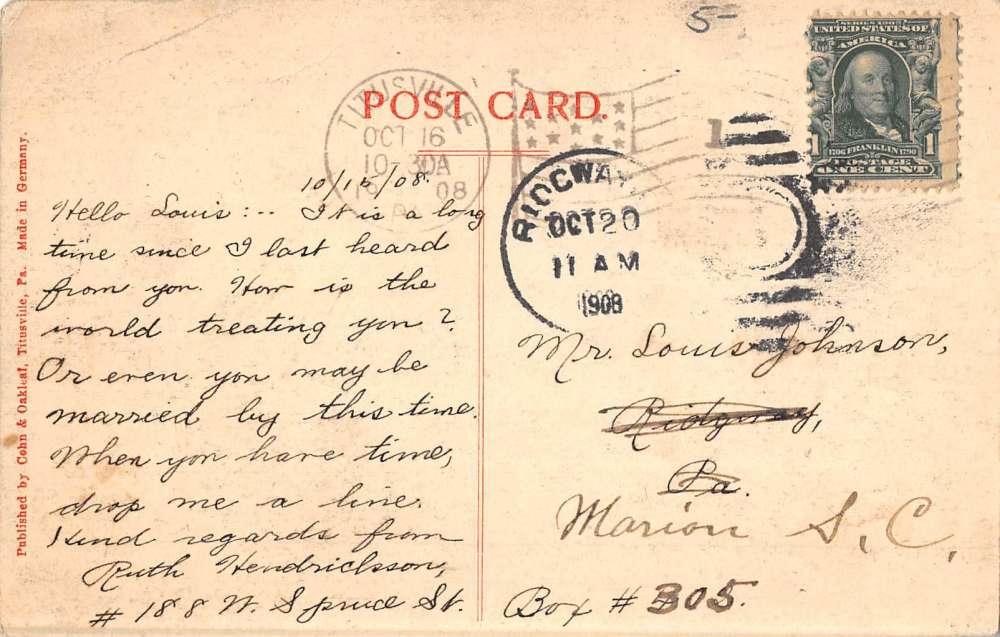 5-
SERIES 1902
UNITED STATES OF
AMERICA
1
1706 FRANKLIN 1790
1
POSTAGE
ONE CENT
POST CARD.
TITUSVILLE
OCT 16
10-30A
08
PA
1
RIDGWAY
OCT 20
11 AM
1908
10/15/08.
Hello Louis:.. It is a long
time since I last heard
from you. How is the
world treating you?
Or even you may be
married by this time.
When you have time,
drop me a line.
Kind regards from
Ruth Hendricksson,
# 188 W. Spruce St.
Mr. Louis Johnson,
Ridgway,
Pa.
Marion S, C,
Box # 305.
Published by Cohn & Oakleaf, Titusville, Pa. Made in Germany.